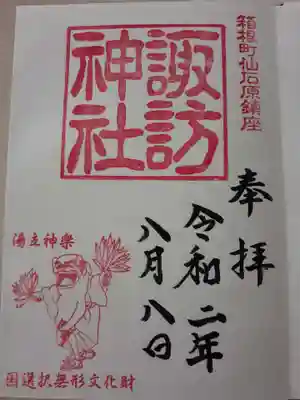 箱根町仙石原鎮座
諏訪
神社
奉拝
令和二年
八月八日
湯立神楽
国選択無形文化財